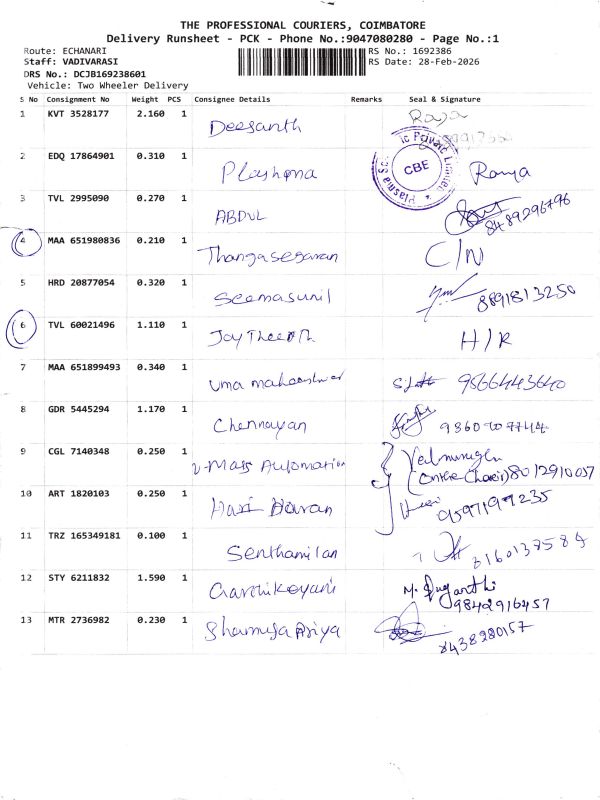 THE PROFESSIONAL COURIERS, COIMBATORE
Delivery Runsheet - PCK - Phone No.:9047080280 - Page No.:1
Route: ECHANARI
RS No.: 1692386
Staff: VADIVARASI
RS Date: 28-Feb-2026
DRS No.: DCJB169238601
Vehicle: Two Wheeler Delivery
S No Consignment No Weight PCS Consignee Details Remarks Seal & Signature
1 KVT 3528177 2.160 1 Deesanth Raja
2 EDQ 17864901 0.310 1 CBE Ramya
3 TVL 2995090 0.270 1 ABDUL 8489296796
4 MAA 651980836 0.210 1 Thangasegaran C/N
5 HRD 20877054 0.320 1 Seemasunil 8891813250
6 TVL 60021496 1.110 1 H/R
7 MAA 651899493 0.340 1 uma maheeshwar 9566443640
8 GDR 5445294 1.170 1 Chennayan
9 CGL 7140348 0.250 1 V-Mass Automation Velmurugan
8012910057
10 ART 1820103 0.250 1 Hari Haran 9597197235
11 TRZ 165349181 0.100 1 Senthamilan
12 STY 6211832 1.590 1 M. Suganthi
9842916457
13 MTR 2736982 0.230 1 8438280157